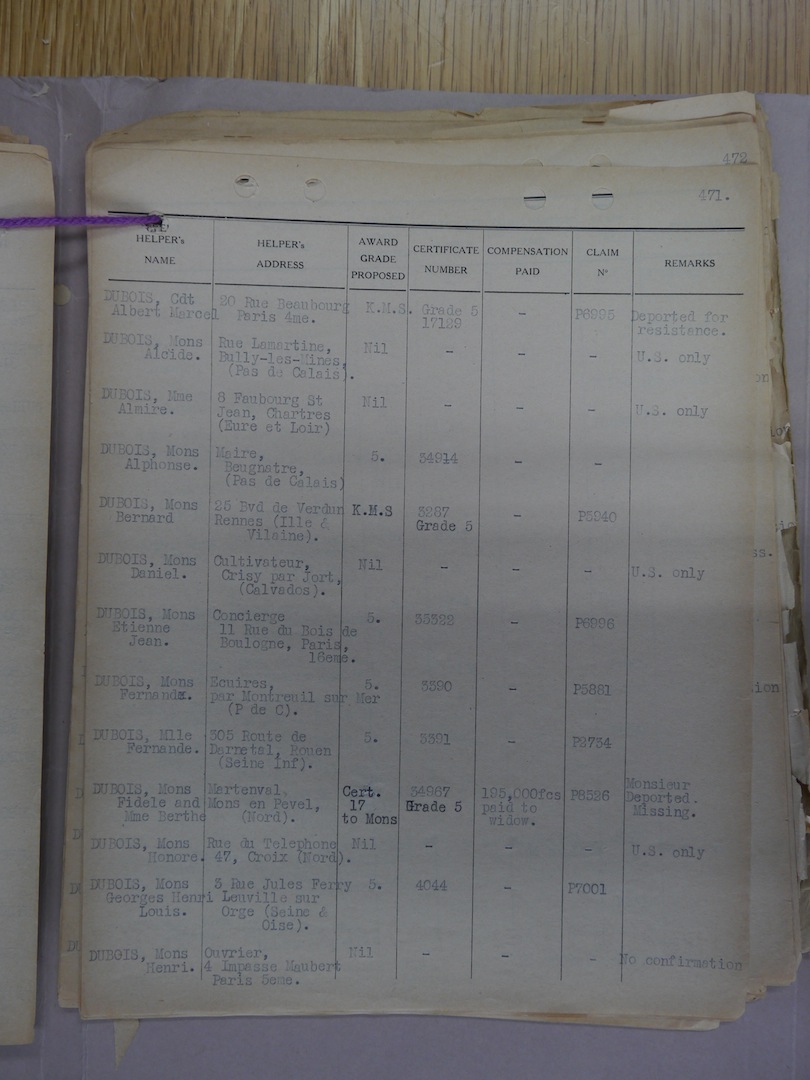 472
471.
HELPER's NAME | HELPER's ADDRESS | AWARD GRADE PROPOSED | CERTIFICATE NUMBER | COMPENSATION PAID | CLAIM Nº | REMARKS
DUBOIS, Cdt 20 Rue Beaubourg K.M.S. Grade 5 - P6995 Deported for
Albert Marcel Paris 4me. 17129 résistance.
DUBOIS, Mons Rue Lamartine, Nil - - - U.S. only
Alcide. Bully-les-Mines,
(Pas de Calais).
DUBOIS, Mme 8 Faubourg St Nil - - - U.S. only
Almire. Jean, Chartres
(Eure et Loir)
DUBOIS, Mons Maire, 5. 34914 - -
Alphonse. Beugnatre,
(Pas de Calais)
DUBOIS, Mons 25 Bvd de Verdun K.M.S 3287 - P5940
Bernard Rennes (Ille & Grade 5
Vilaine).
DUBOIS, Mons Cultivateur, Nil - - - U.S. only
Daniel. Crisy par Jort,
(Calvados).
DUBOIS, Mons Concierge 5. 35322 - P6996
Etienne 11 Rue du Bois de
Jean. Boulogne, Paris,
16eme.
DUBOIS, Mons Ecuires, 5. 3390 - P5881
Fernand. par Montreuil sur Mer
(P de C).
DUBOIS, Mlle 305 Route de 5. 3391 - P2734
Fernande. Darnetal, Rouen
(Seine Inf).
DUBOIS, Mons Martenval, Cert. 34967 195,000fcs P8526 Monsieur
Fidele and Mons en Pevel, 17 Grade 5 paid to Deported.
Mme Berthe (Nord). to Mons widow. Missing.
DUBOIS, Mons Rue du Telephone Nil - - - U.S. only
Honore. 47, Croix (Nord).
DUBOIS, Mons 3 Rue Jules Ferry 5. 4044 - P7001
Georges Henri Leuville sur
Louis. Orge (Seine &
Oise).
DUBOIS, Mons Ouvrier, Nil - - - No confirmation
Henri. 4 Impasse Maubert
Paris 5eme.